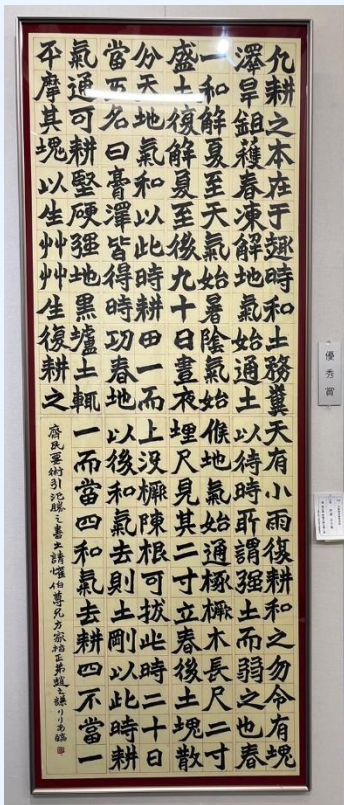 凡耕之本在于趣時和土務糞
澤旱鉏穫春凍解地氣始通土
一和解夏至天氣始暑陰氣始
盛土復解夏至後九十日晝夜
分天地氣和以此時耕田一而
當五名曰膏澤皆得時功春地
氣通可耕堅硬强地黑壚土輒
平摩其塊以生艸艸生復耕之
天有小雨復耕和之勿令有塊
以待時所謂强土而弱之也春
候地氣始通椓橛木長尺二寸
埋尺見其二寸立春後土塊散
上没橛陳根可拔此時二十日
以後和氣去則土剛以此時耕
一而當四和氣去耕四不當一
齊民要術引氾勝之書書請燿伯尊兄方家指正弟趙之謙
優秀賞